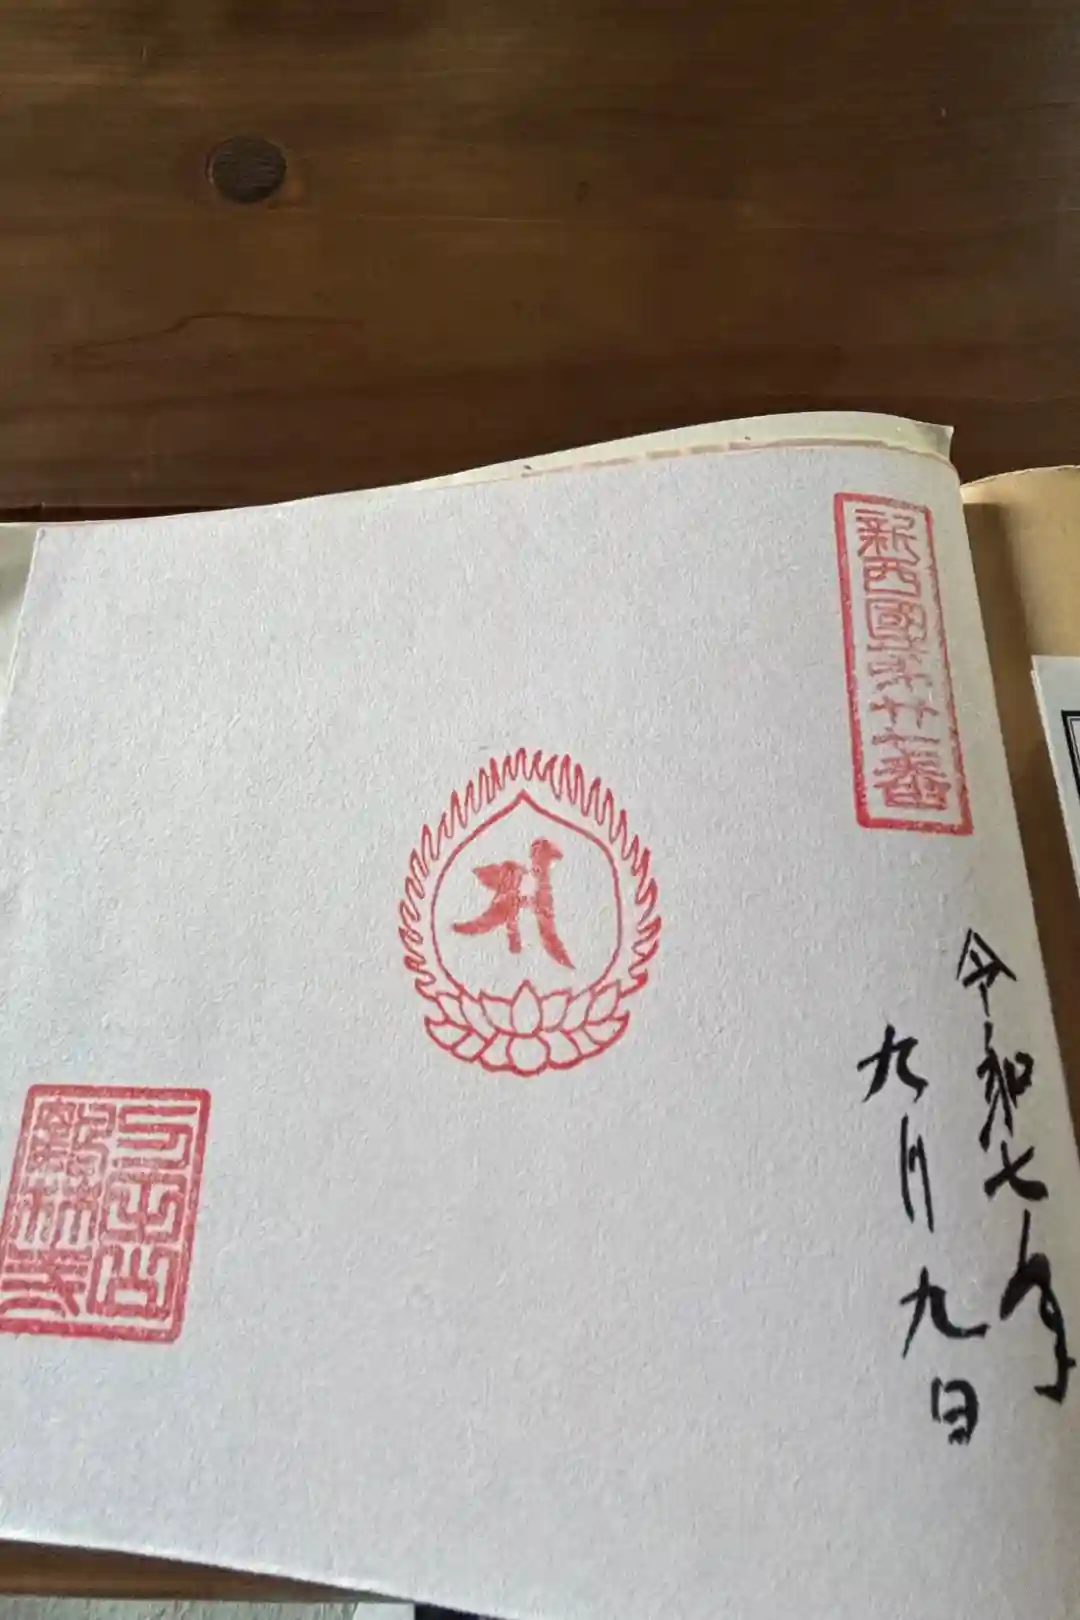 新西國第廿一番
令和七年
九月九日